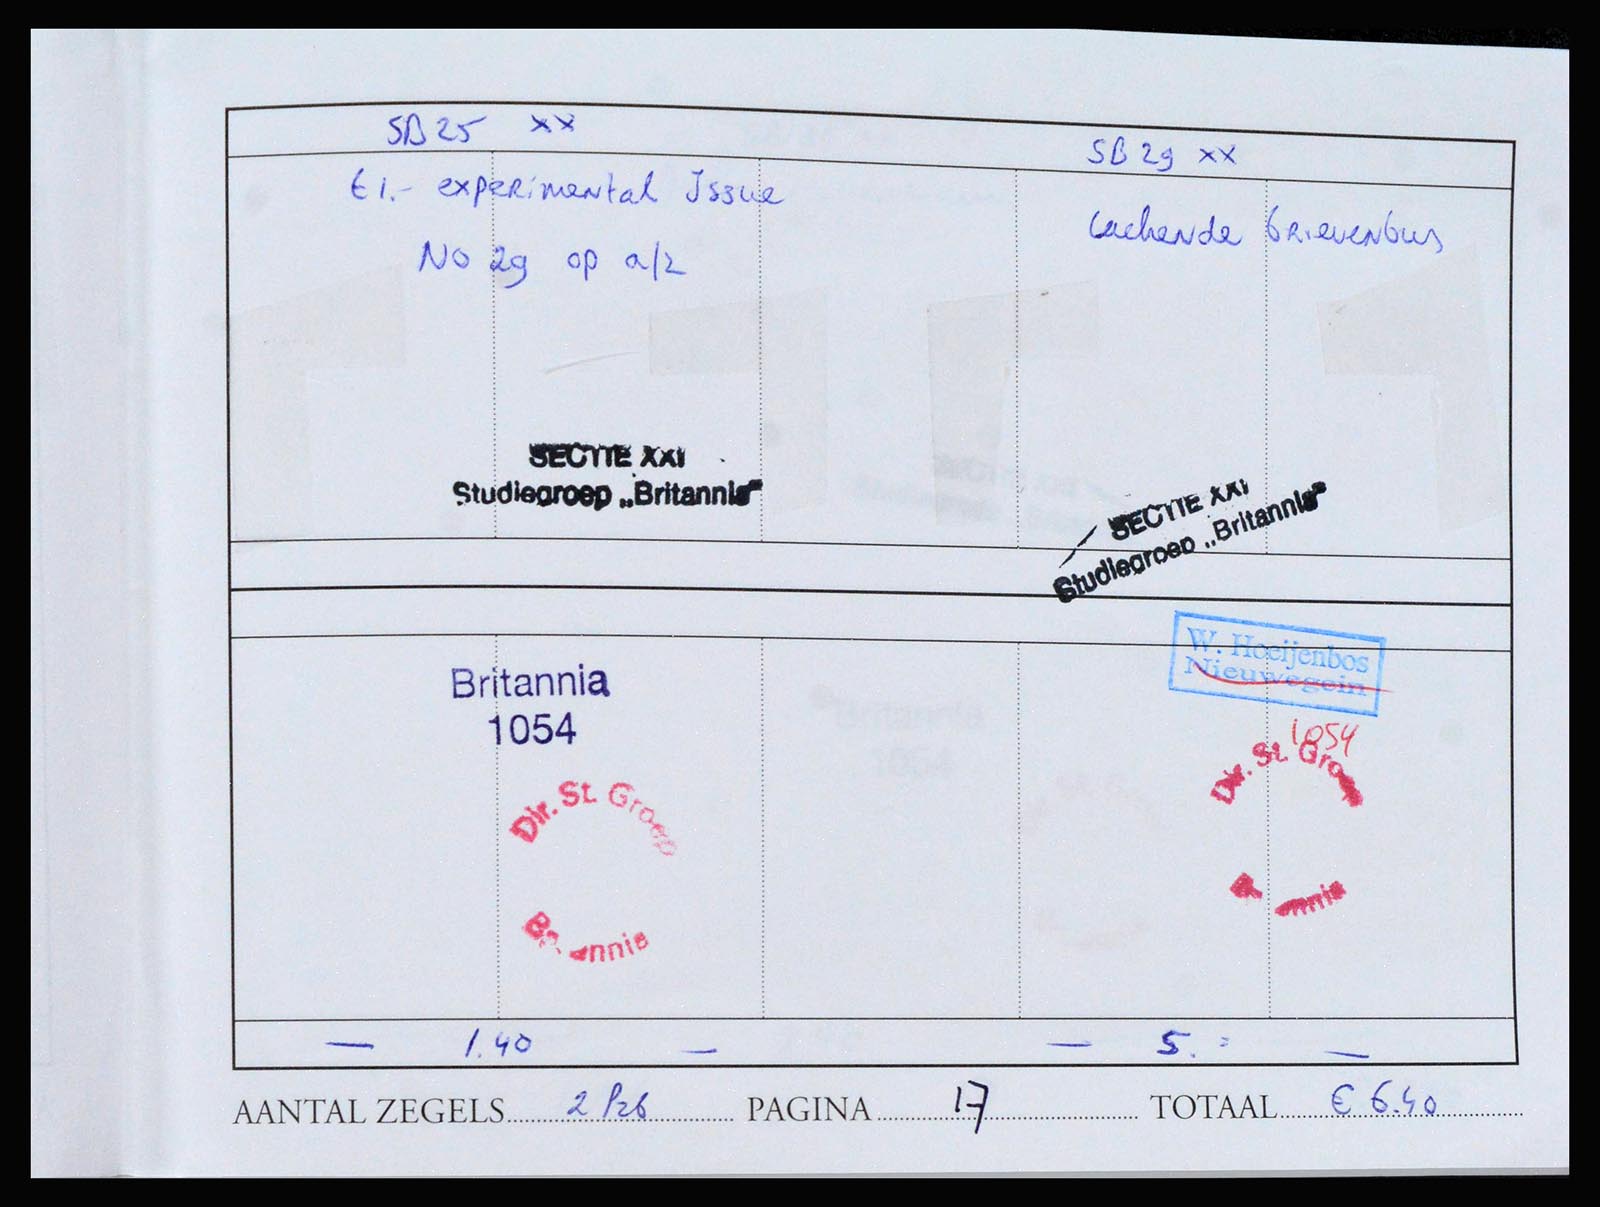 SB 25 xx
SB 29 xx
€ 1.- experimental Issue
No 29 op a/2
Lachende brievenbus
SECTIE XXI
Studiegroep „Britannia"
SECTIE XXI
Studiegroep „Britannia"
Britannia
1054
W. Hoeijenbos
Nieuwegein
1054
Dir. St. Groep
Dir. St. Groep
— 1.40 —
— 5.- —
AANTAL ZEGELS 2 Pzb PAGINA 17 TOTAAL € 6.40